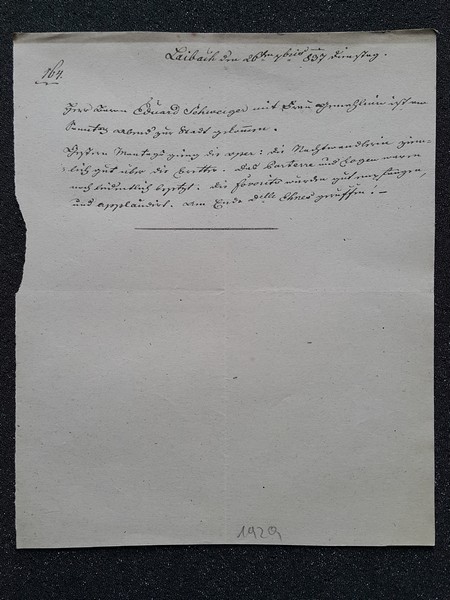 Laibach den 26ten 7bris 837 Dienstag.
164.
Herr Baron Eduard Schweiger mit Frau Gemahlinn ist am
Samstag Abend zur Stadt gekommen.
Gestern Montags gieng die Oper: die Nachtwandlerin ziem-
lich gut über die Bretter. Das Parterre und Logen waren
noch leidentlich besetzt. Die Favorits wurden gut empfangen,
und applaudirt. Am Ende Dlle Ehnes gerufen! –
1929